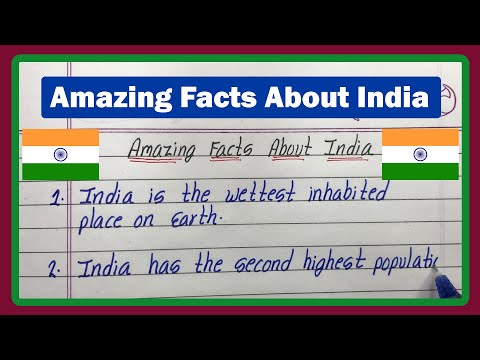 Amazing Facts About India
Amazing Facts About India
1. India is the wettest inhabited
place on Earth.
2. India has the second highest populatio